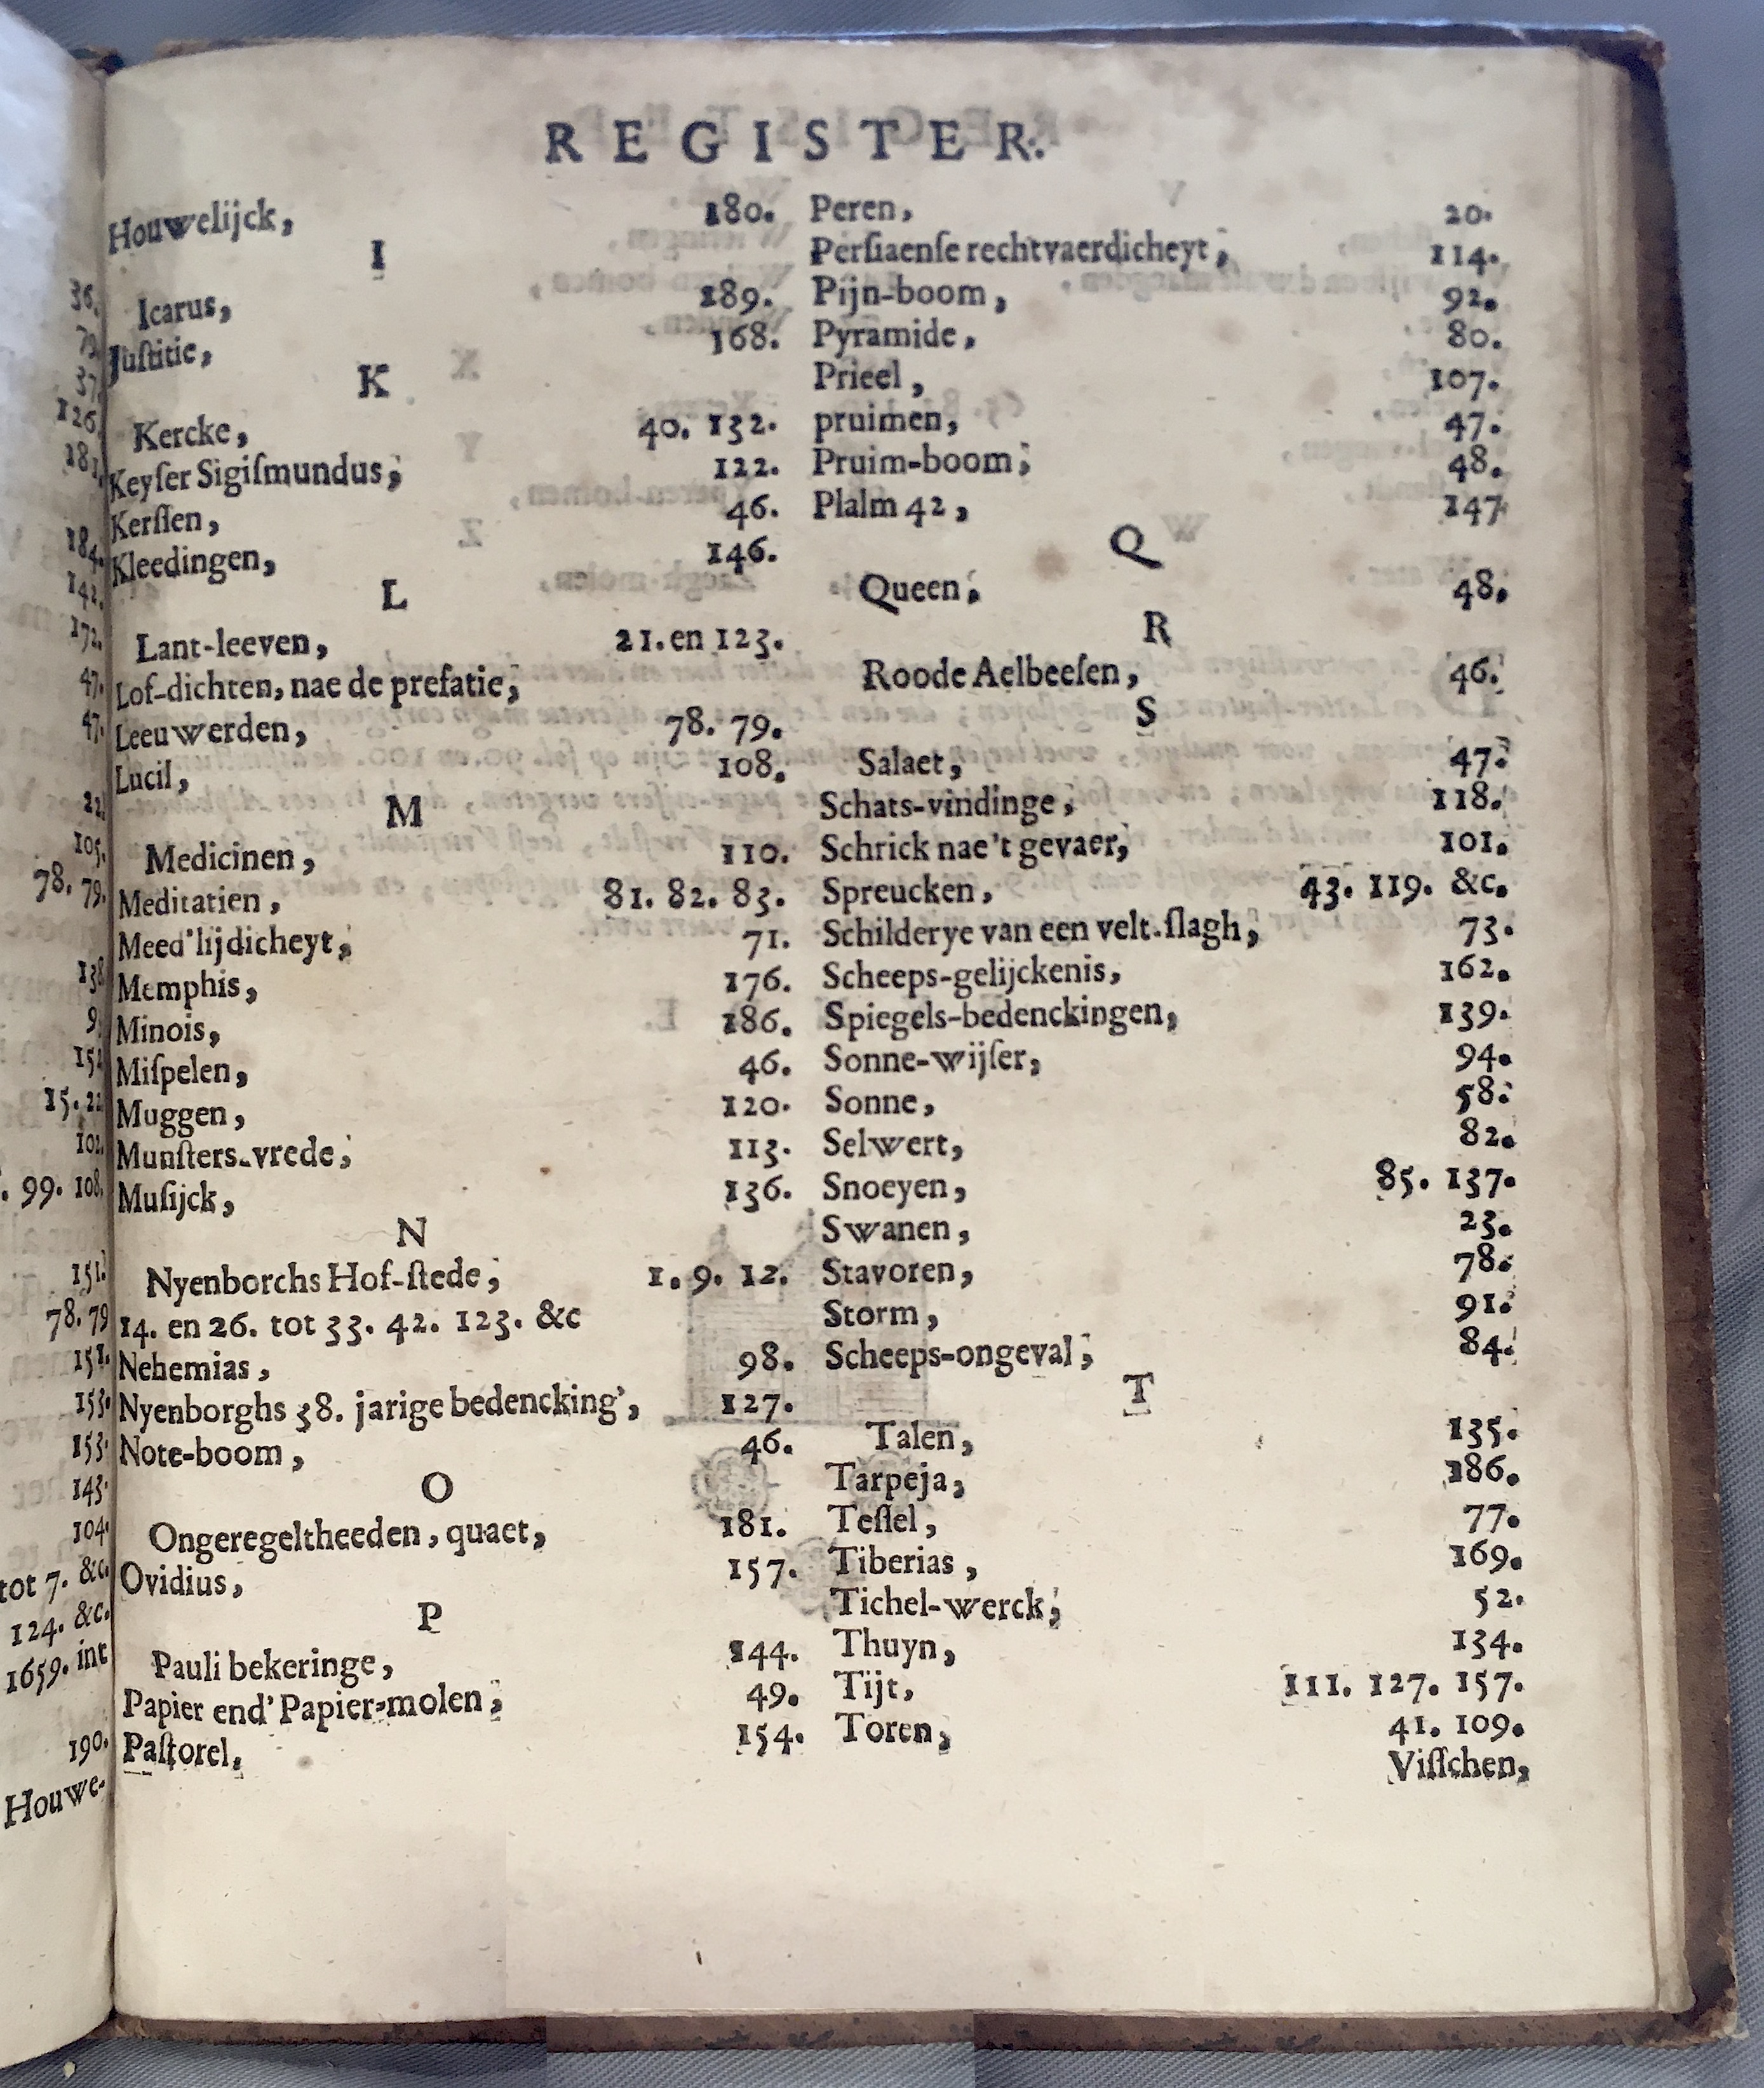 REGISTER.
Houwelijck, 180.
I
Icarus, 189.
Juſtitie, 168.
K
Kercke, 40. 132.
Keyſer Sigiſmundus, 122.
Kerſſen, 46.
Kleedingen, 146.
L
Lant-leeven, 21. en 123.
Lof-dichten, nae de prefatie,
Leeuwerden, 78. 79.
Lucil, 108.
M
Medicinen, 110.
Meditatien, 81. 82. 83.
Meed'lijdicheyt, 71.
Memphis, 176.
Minois, 186.
Miſpelen, 46.
Muggen, 120.
Munſters-vrede, 113.
Muſijck, 136.
N
Nyenborchs Hof-ſtede, 1. 9. 12.
14. en 26. tot 33. 42. 123. &c
Nehemias, 98.
Nyenborghs 38. jarige bedencking', 127.
Note-boom, 46.
O
Ongeregeltheeden, quaet, 181.
Ovidius, 157.
P
Pauli bekeringe, 144.
Papier end' Papier-molen, 49.
Paſtorel, 154.
Peren, 20.
Perſiaenſe rechtvaerdicheyt, 114.
Pijn-boom, 92.
Pyramide, 80.
Prieel, 107.
pruimen, 47.
Pruim-boom, 48.
Pſalm 42, 147
Q
Queen, 48.
R
Roode Aelbeeſen, 46.
S
Salaet, 47.
Schats-vindinge, 118.
Schrick nae't gevaer, 101.
Spreucken, 43. 119. &c.
Schilderye van een velt-ſlagh, 73.
Scheeps-gelijckenis, 162.
Spiegels-bedenckingen, 139.
Sonne-wijſer, 94.
Sonne, 58.
Selwert, 82.
Snoeyen, 85. 137.
Swanen, 23.
Stavoren, 78.
Storm, 91.
Scheeps-ongeval, 84.
T
Talen, 135.
Tarpeja, 186.
Teſſel, 77.
Tiberias, 169.
Tichel-werck, 52.
Thuyn, 134.
Tijt, 111. 127. 157.
Toren, 41. 109.
Viſſchen,
36.
37.
126.
184.
142.
172.
47.
47.
105.
78. 79.
15. 22
102.
99. 108.
151.
78. 79
151.
153.
153.
143.
104.
tot 7. &c.
124. &c.
1659. int
190.
Houwe-